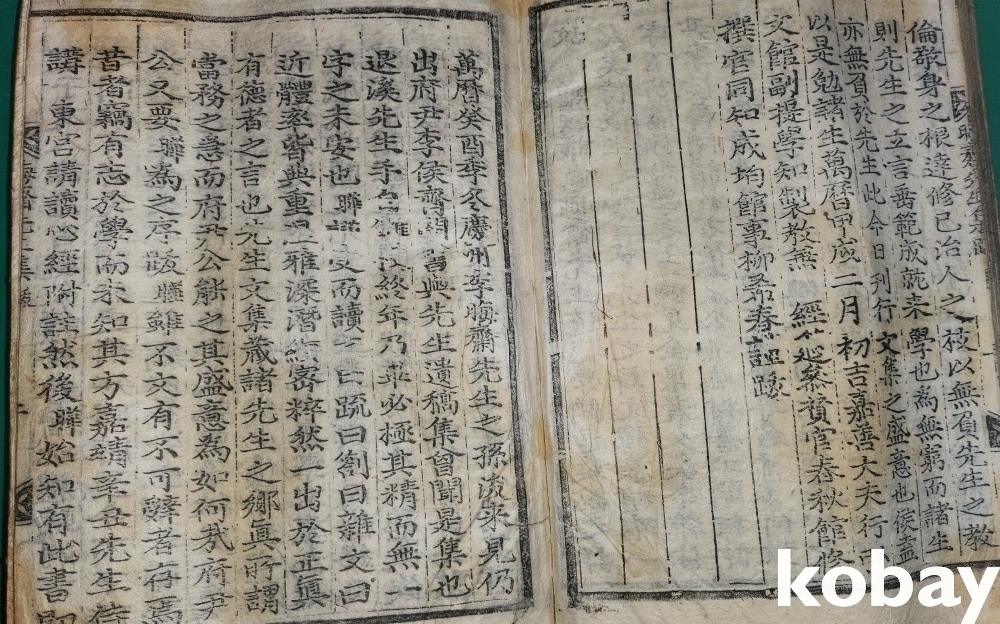 倫敬身之根遠修已治人之技以無負先生之教
則先生之立言垂範成就来學也為無窮而諸生
亦無負於先生此今日刊行文集之盛意也侯盍
以是勉諸生萬曆甲戌二月初吉嘉善大夫行
文館副提學知製教兼 經筵參贊官春秋館修
撰官同知成均館事柳希春謹跋
萬曆癸酉季冬慶州李晦齋先生之孫浚来見仍
出府尹李侯齊閔書與先生遺稿集曾聞是集也
退溪先生手自讎校終年乃畢必極其精而無一
字之未安也曄受而讀之曰疏曰劄曰雜文曰
近體率皆典重溫雅深潛縝密粹然一出於正眞
有德者之言也先生文集蔵諸先生之鄉眞所謂
當務之急而府尹公能之其盛意為如何哉府尹
公又要曄為之序跋曄雖不文有不可辭者存焉
昔者竊有志於學而未知其方嘉靖辛丑先生侍
講 東宮講讀心經附註然後曄始知有此書
kobay